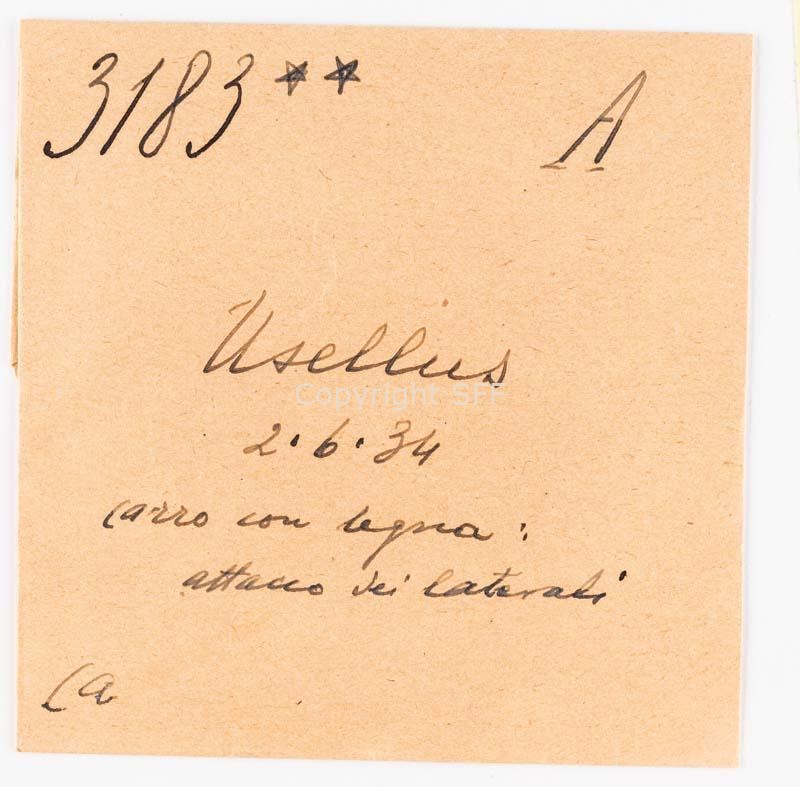 3183** A
Usellus
Copyright SFF
2.6.34
carro con legna:
attacco dei laterali
Ca